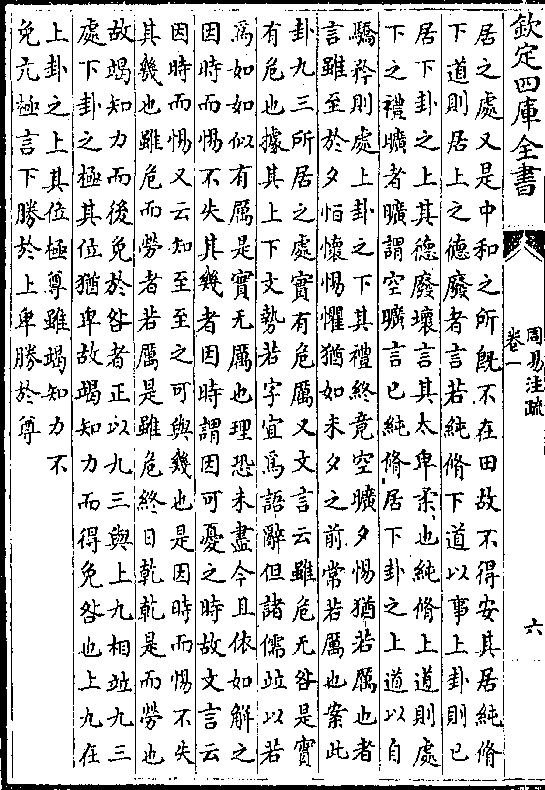 欽定四庫全書
周易注疏
卷一
六
居之處又是中和之所既不在田故不得安其居純脩
下道則居上之德廢者言若純脩下道以事上卦則已
居下卦之上其德廢壞言其太卑柔也純脩上道則處
下之禮曠者曠謂空曠言已純脩居下卦之上道以自
驕矜則處上卦之下其禮終竟空曠夕惕猶若厲也者
言雖至於夕怕懷惕懼猶如未夕之前常若厲也案此
卦九三所居之處實有危厲又文言云雖危无咎是實
有危也據其上下文勢若字宜為語辭但諸儒竝以若
為如如似有厲是實无厲也理恐未盡今且依如解之
因時而惕不失其幾者因時謂因可憂之時故文言云
因時而惕又云知至至之可與幾也是因時而惕不失
其幾也雖危而勞者若厲是雖危終日乾乾是而勞也
故竭知力而後免於咎者正以九三與上九相竝九三
處下卦之極其位猶卑故竭知力而得免咎也上九在
上卦之上其位極尊雖竭知力不
免亢極言下勝於上卑勝於尊